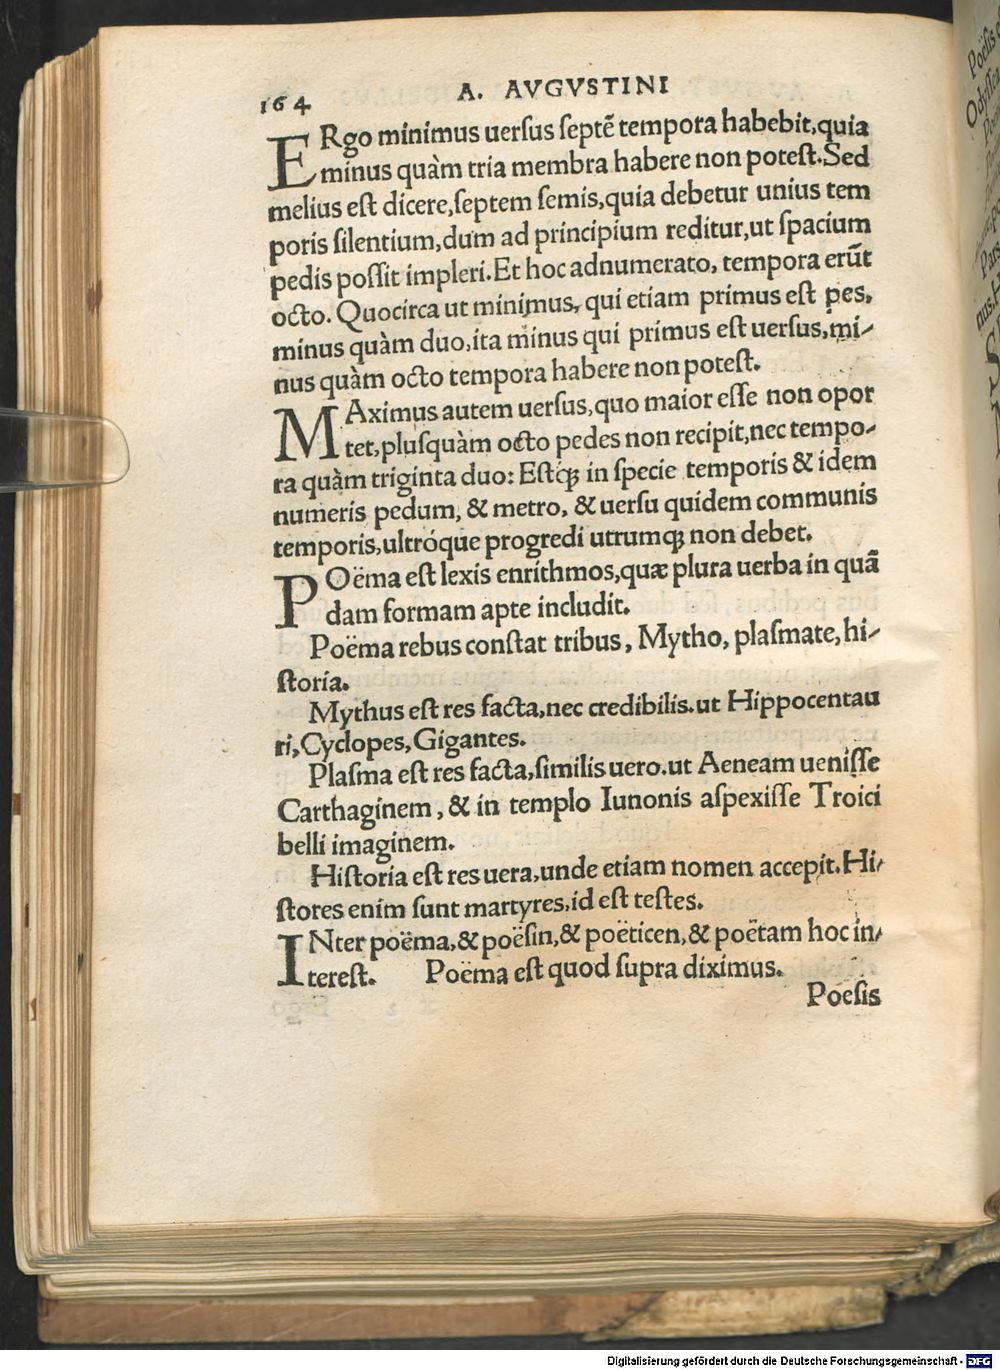 164 A. AVGVSTINI
ERgo minimus uersus septē tempora habebit,quia
minus quàm tria membra habere non potest.Sed
melius est dicere,septem semis,quia debetur unius tem
poris silentium,dum ad principium reditur,ut spacium
pedis possit impleri.Et hoc adnumerato, tempora erūt
octo. Quocirca ut minimus, qui etiam primus est pes,
minus quàm duo,ita minus qui primus est uersus,mi-
nus quàm octo tempora habere non potest.
MAximus autem uersus,quo maior esse non opor
tet,plusquàm octo pedes non recipit,nec tempo-
ra quàm triginta duo: Estq́; in specie temporis & idem
numeris pedum, & metro, & uersu quidem communis
temporis,ultróque progredi utrumq; non debet.
POëma est lexis enrithmos,quæ plura uerba in quā
dam formam apte includit.
Poëma rebus constat tribus, Mytho, plasmate, hi-
storia.
Mythus est res facta,nec credibilis.ut Hippocentau
ri,Cyclopes,Gigantes.
Plasma est res facta,similis uero.ut Aeneam uenisse
Carthaginem, & in templo Iunonis aspexisse Troici
belli imaginem.
Historia est res uera,unde etiam nomen accepit.Hi-
stores enim sunt martyres,id est testes.
INter poëma,& poësin,& poëticen,& poëtam hoc in-
terest. Poëma est quod supra diximus.
Poesis
Digitalisierung gefördert durch die Deutsche Forschungsgemeinschaft - DFG